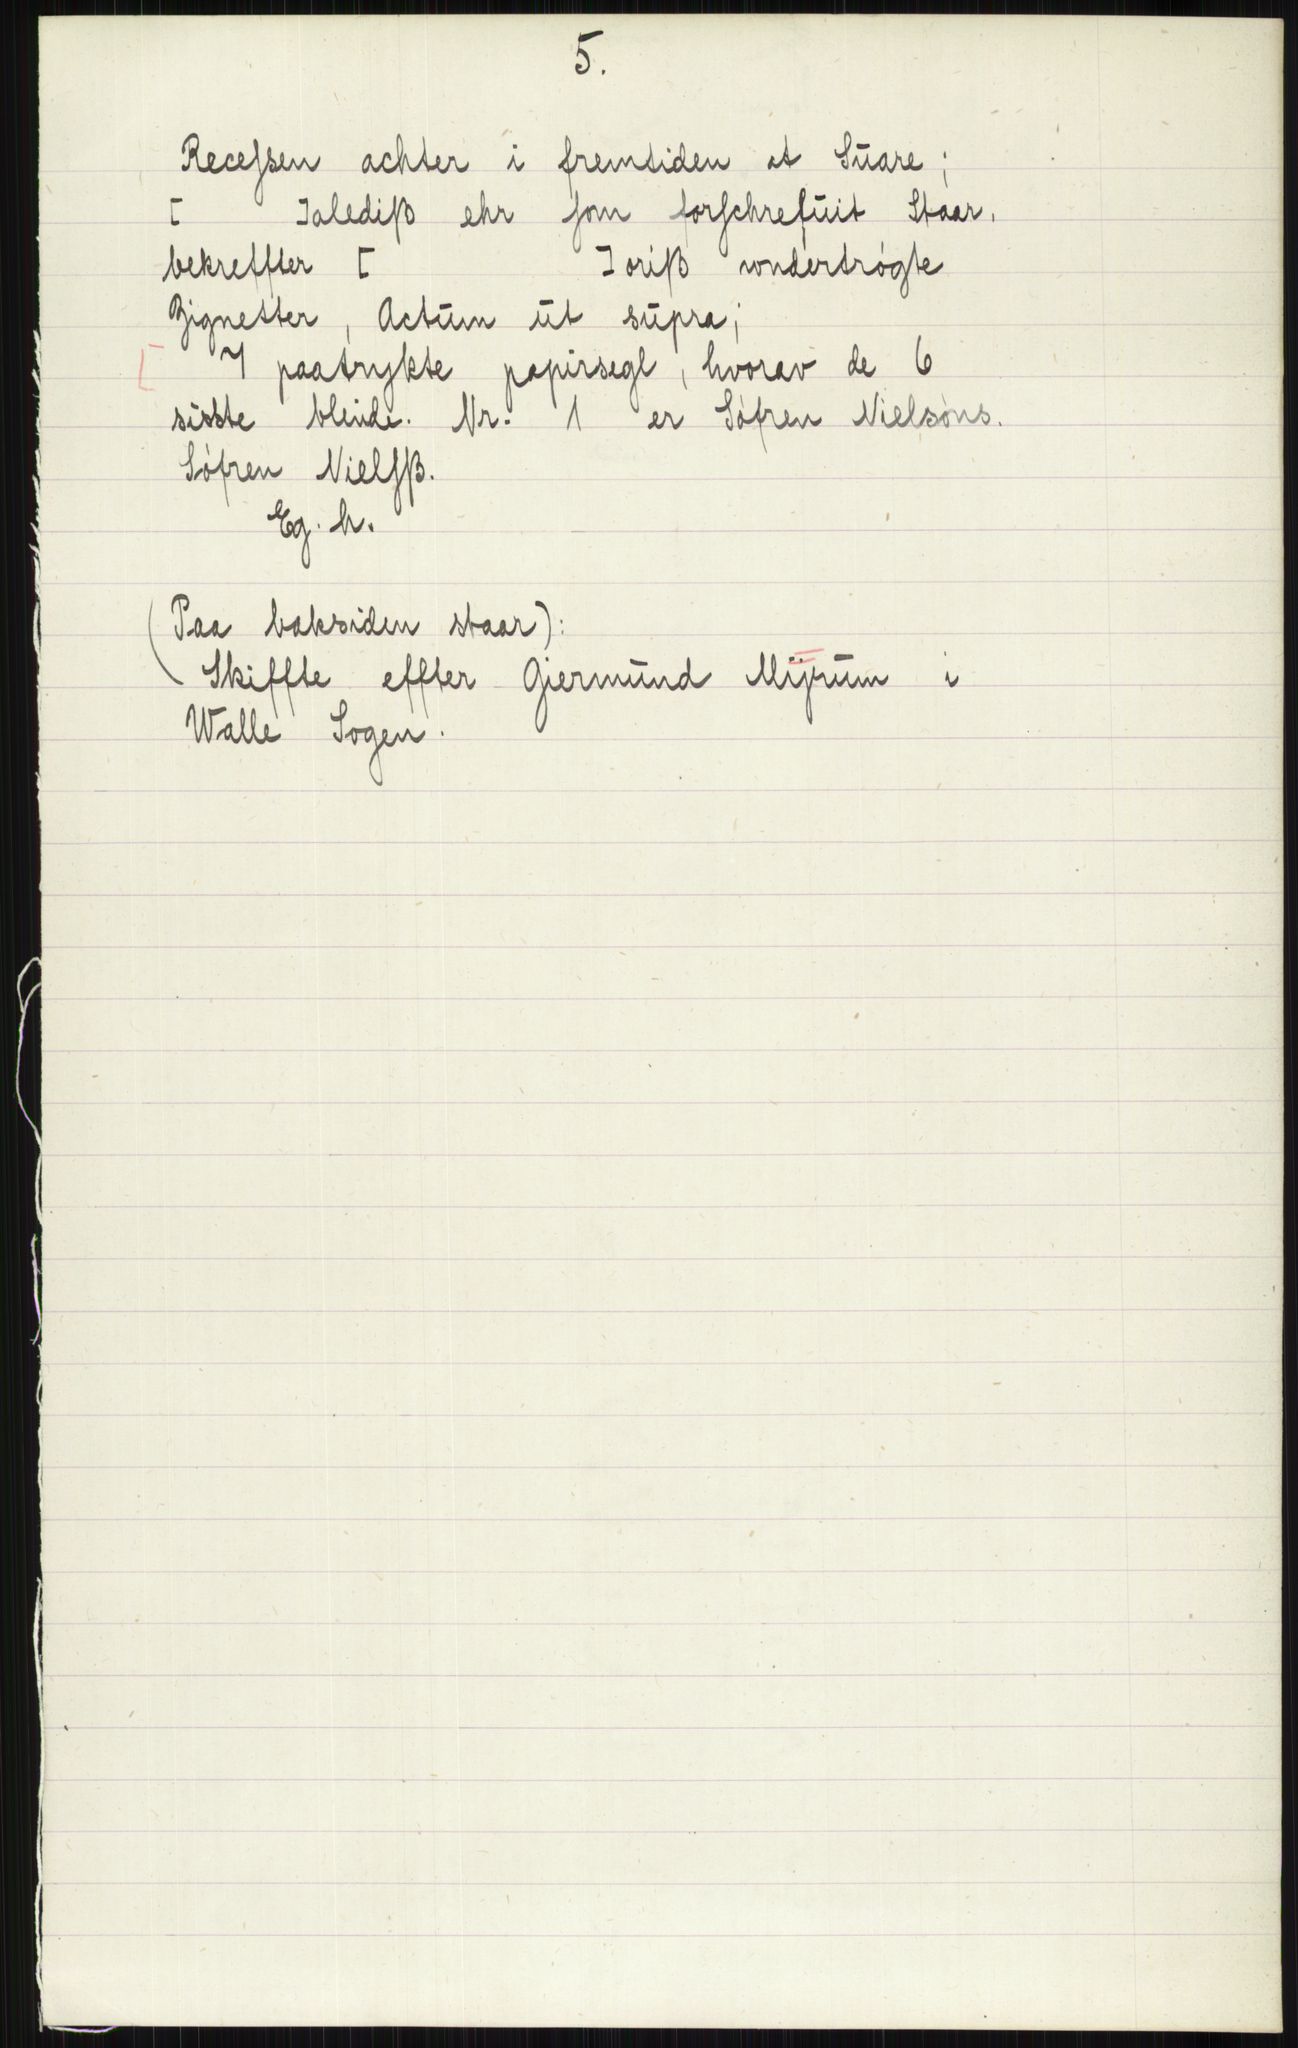 5.
Recessen achter i fremtiden at Sūare;
[ ]alediß ehr som forschrefūit Staar,
bekreffter [ ]oriß wndertrøgte
Zignetter, Actūm ūt sūpra;
[ 7 paatrykte papirsegl, hvorav de 6
sisste blinde. Nr. 1 er Søfren Nielsøns.
Søfren Nielsß.
Eg. h.
(Paa baksiden staar):
Skiffte effter Giermūnd Mÿrūm i
Walle Sogen.